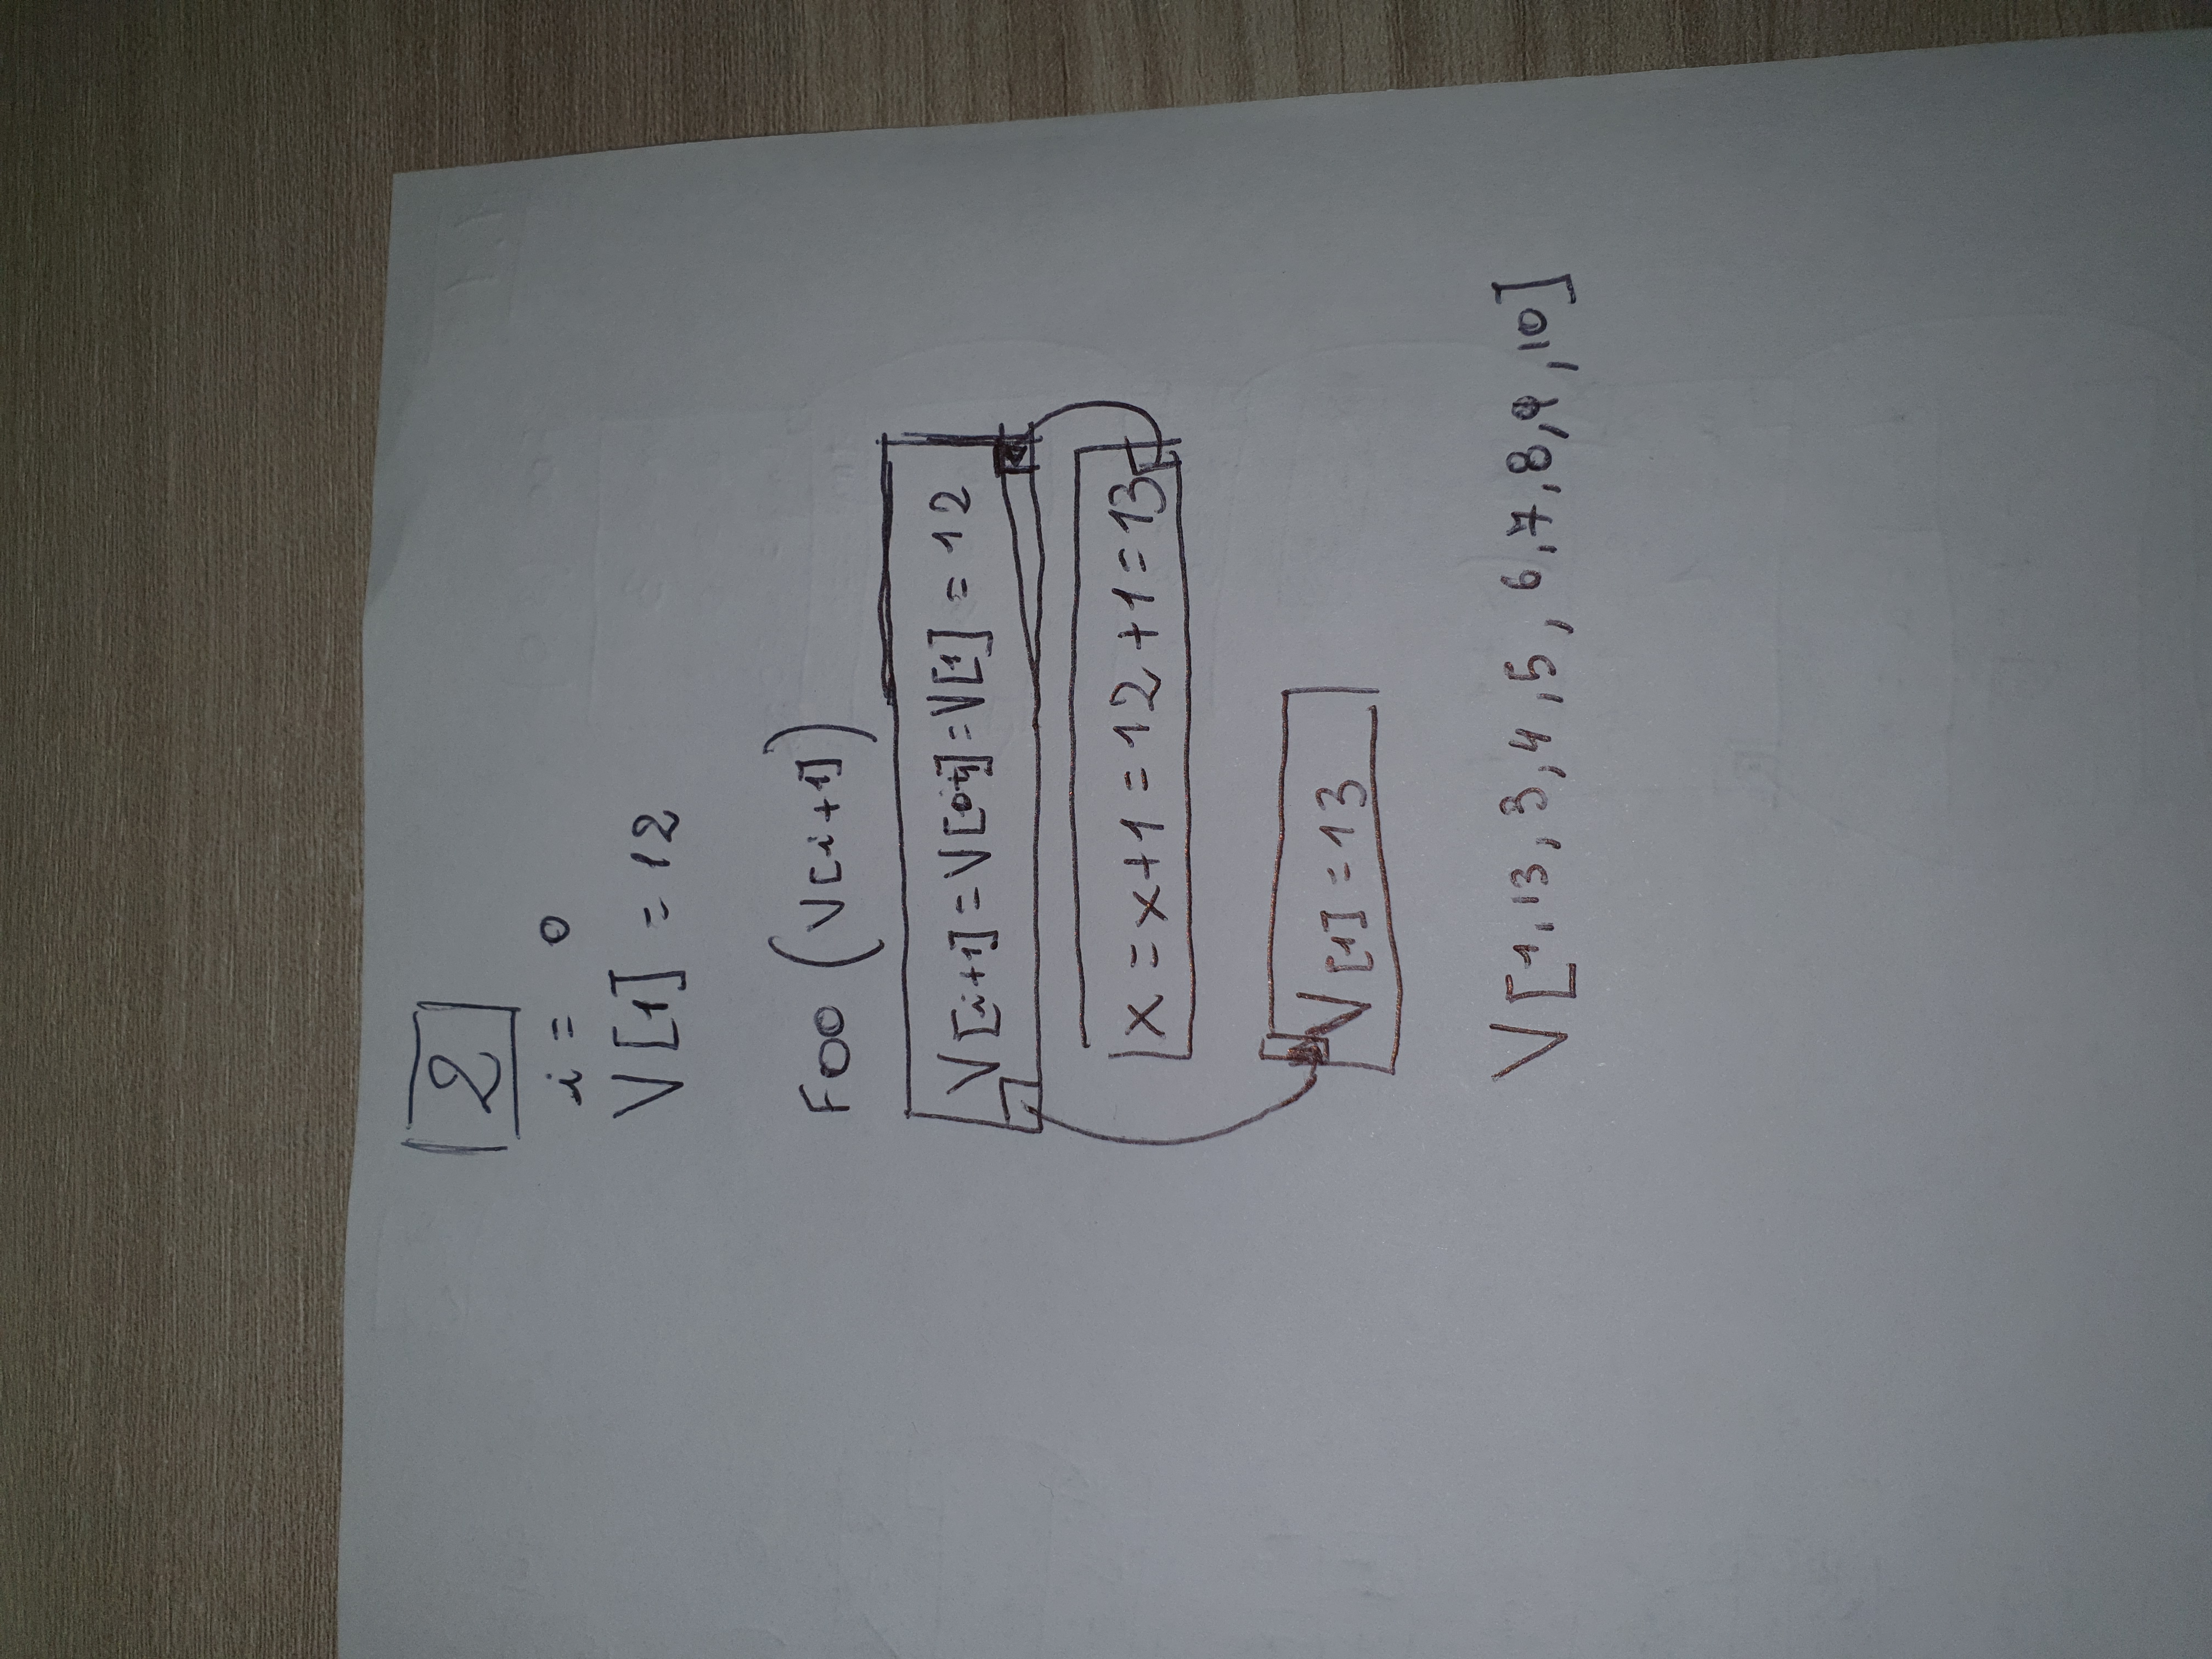 2
i = 0
V[1] = 12
Foo (V[i+1])
V[i+1] = V[0+1] = V[1] = 12
x = x+1 = 12+1 = 13
V[1] = 13
V[1, 13, 3, 4, 5, 6, 7, 8, 9, 10]